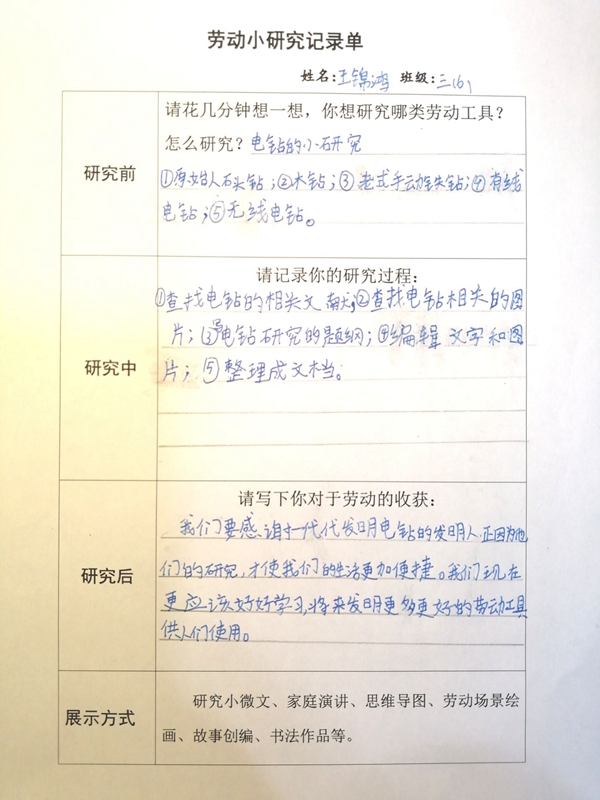 劳动小研究记录单
姓名:王锦鸿 班级:三(6)
请花几分钟想一想，你想研究哪类劳动工具？
怎么研究？电钻的小研究
研究前
①原始人石头钻；②木钻；③老式手动钻；④有线
电钻；⑤无线电钻。
请记录你的研究过程：
①查找电钻的相关文献；②查找电钻相关的图
片；③电钻研究的题纲；④编辑文字和图
研究中
片；⑤整理成文档。
请写下你对于劳动的收获：
我们要感谢一代代发明电钻的发明人，正因为他
们的研究，才使我们的生活更加便捷。我们现在
研究后
更应该好好学习，将来发明更多更好的劳动工具
供人们使用。
研究小微文、家庭演讲、思维导图、劳动场景绘
展示方式
画、故事创编、书法作品等。